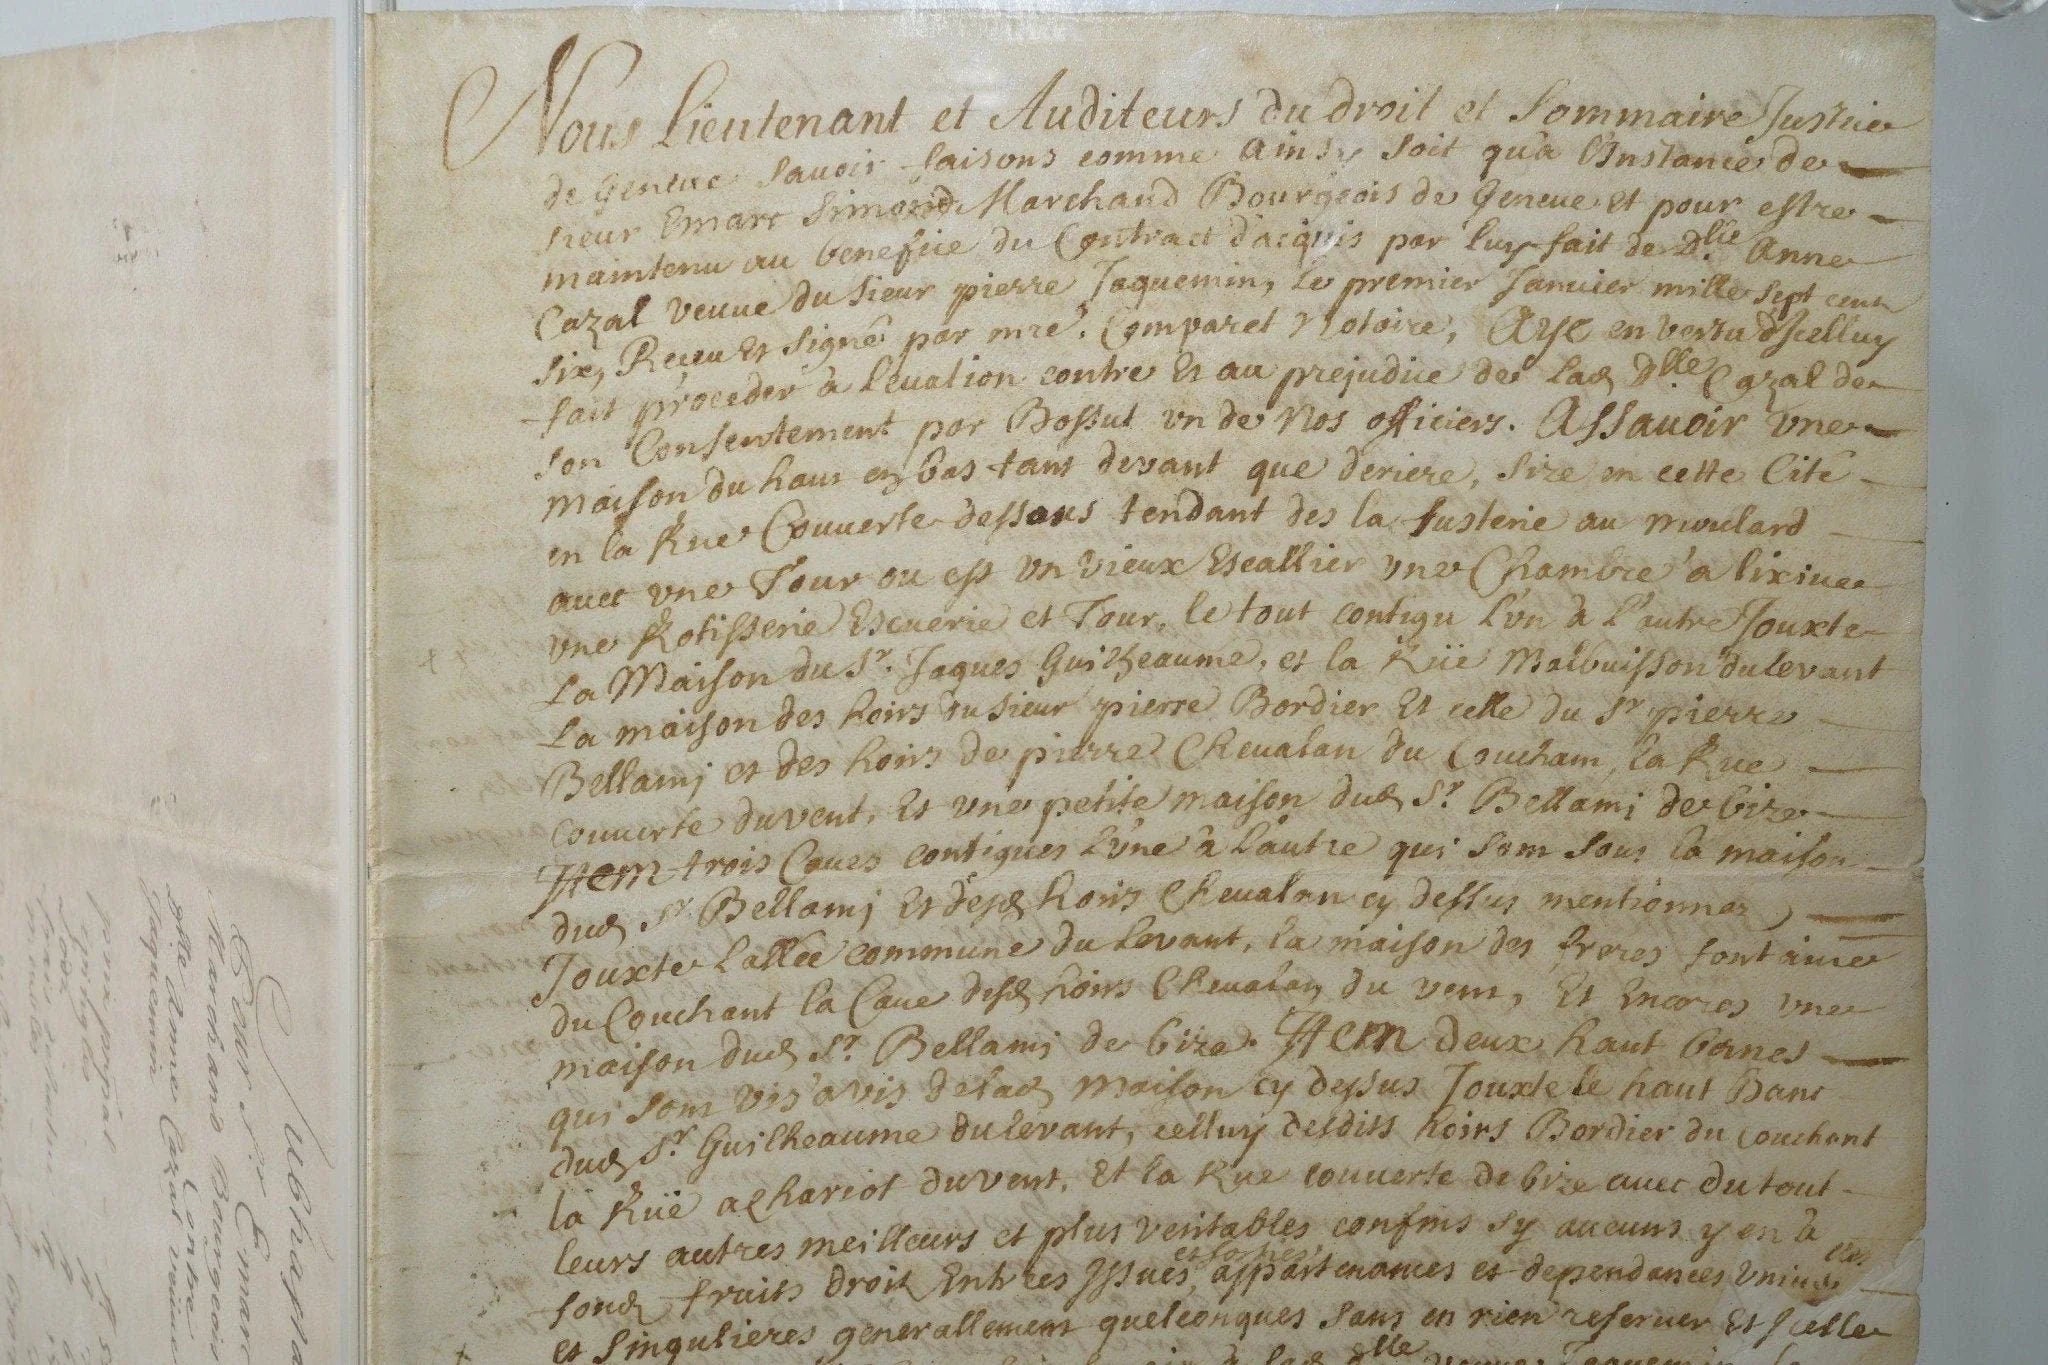 Nous Lieutenant et Auditeurs du droit et Sommaire Justice
de Geneue Sauoir faisons comme Ainsy soit qu'à l'Instance de
sieur Emarc Simond Marchand Bourgeois de Geneue et pour estre
maintenu au benefice du Contract d'acquis par luy fait de Dlle. Anne
Cazal veuue du sieur pierre Jaquemin, le premier Januier mille sept cent
six, Reçeu Et signé par mre. Comparet Notoire, Aye en vertu d'Icelluy
fait proceder à leuation contre Et au prejudice de lad Dlle. Cazal de
son Consentement par Bossut vn de Nos officiers. Assauoir vne
maison du haut en bas tant devant que deriere, size en cette Cité
en la Rue Couuerte dessous tendant des la fusterie au moulard
auec vne Tour ou est vn vieux Escallier vne Chambre à lixiue
vne Rotisserie Escuerie et Tour, le tout contigu l'vn à l'autre Jouxte
La Maison du Sr. Jaques Guilheaume, et la Rüe Malbuisson du levant
La maison des hoirs du sieur pierre Bordier Et celle du Sr pierre
Bellami et des hoirs de pierre Cheualan du Couchant, la Rue
couuerte du vent, Et vne petite maison dud Sr. Bellami de bize
Item trois Caues contigues L'vne à L'autre qui sont sous la maison
dud Sr Bellami Et desd hoirs Cheualan cy dessus mentionnez,
Jouxte L'allée commune du levant, la maison des freres fontaine
du Couchant la Caue desd hoirs Cheualan du vent, Et Encores vne
maison dud Sr. Bellami de bize. Item deux haut bancs
qui sont vis à vis de lad maison cy dessus Jouxte le haut Banc
dud Sr Guilheaume du levant, celluy desdits hoirs Bordier du couchant
la Rüe à chariot du vent, Et la Rue couuerte de bize auec du tout
leurs autres meilleurs et plus veritables confins sy aucuns y en à
et sorties
fond fruits droit Entrées Issues, appartenances et dependances
et singulieres generallement quelconques sans en rien reseruer Et Icelle
Subhasta
Pour Sr Emarc
Marchand Bourgeois
Contre
Dlle Anne Cazal veuue
Jaquemin